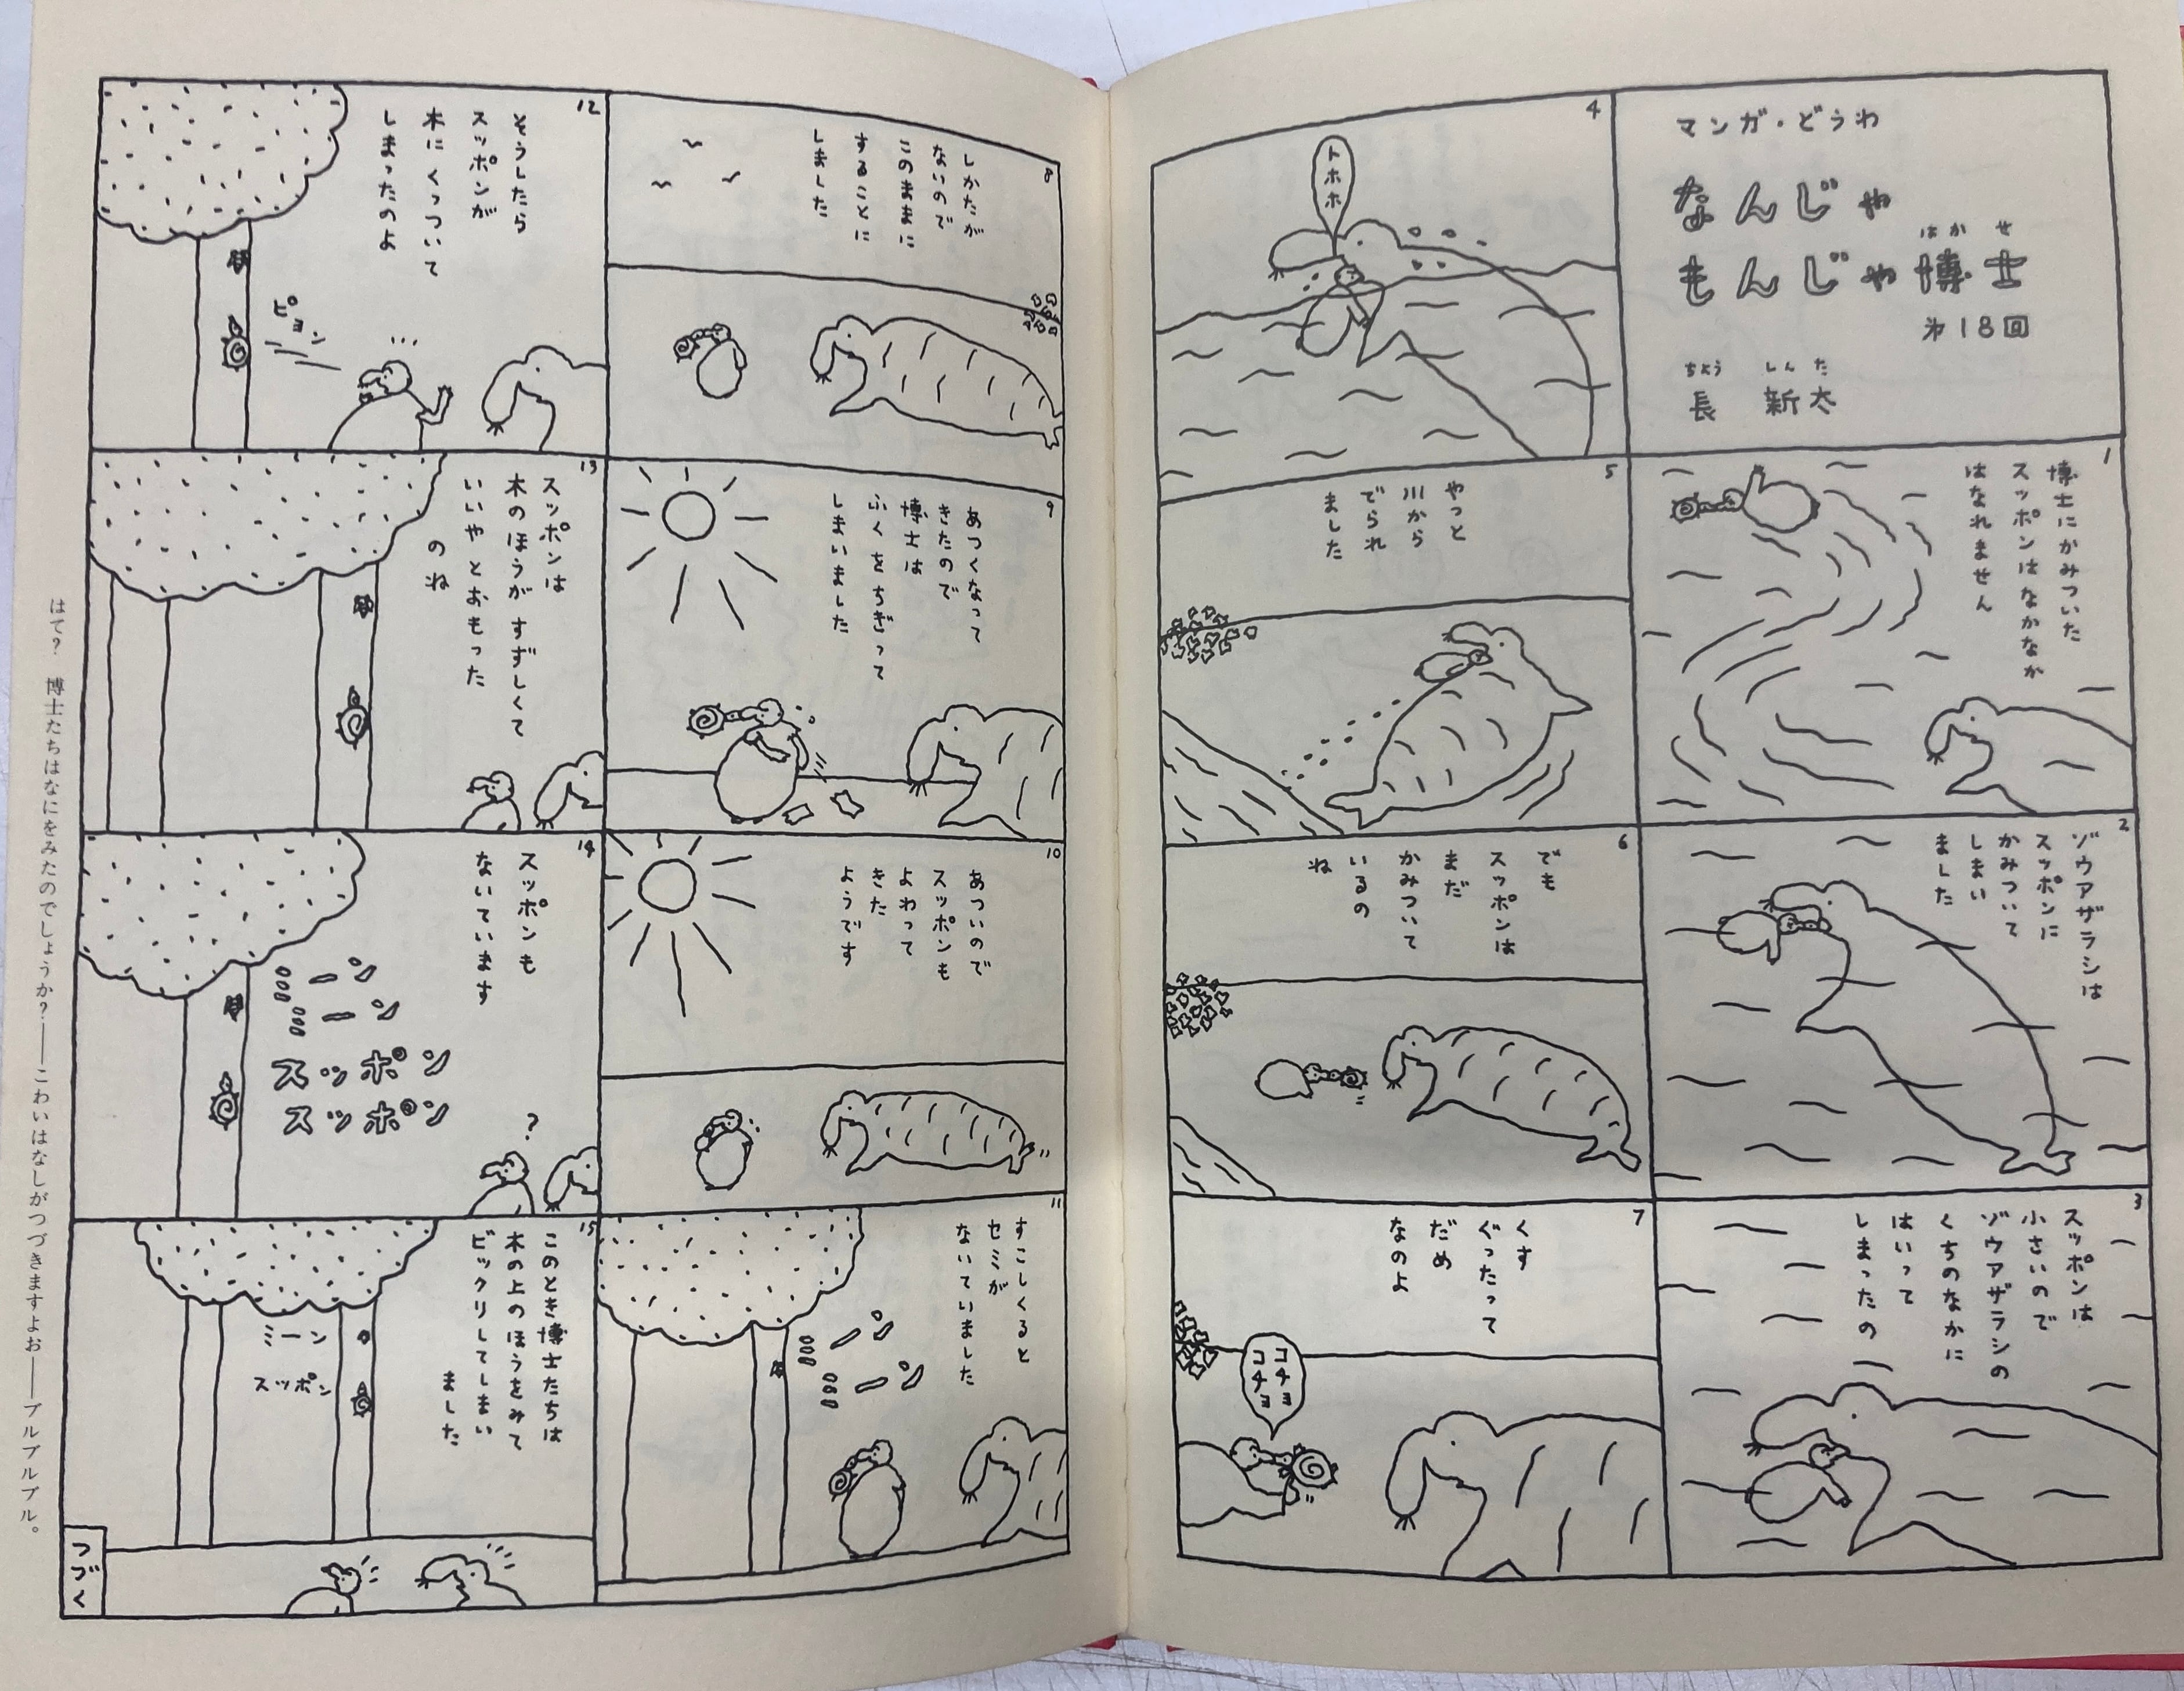 マンガ・どうわ
なんじゃ
はかせ
もんじゃ博士
第18回
ちょう しんた
長 新太
1
博士にかみついた
スッポンはなかなか
はなれません
2
ゾウアザラシは
スッポンに
かみついて
しまい
ました
3
スッポンは
小さいので
ゾウアザラシの
くちのなかに
はいって
しまったの
4
トホホ
5
やっと
川から
でられ
ました
6
でも
スッポンは
まだ
かみついて
いるの
ね
7
くす
ぐったって
だめ
なのよ
コチョ
コチョ
8
しかたが
ないので
このままに
することに
しました
9
あつくなって
きたので
博士は
ふくをちぎって
しまいました
10
あついので
スッポンも
よわって
きた
ようです
11
すこしくると
セミが
ないていました
ミーン
ミーン
12
そうしたら
スッポンが
木にくっついて
しまったのよ
ピョン
13
スッポンは
木のほうがすずしくて
いいやとおもった
のね
14
スッポンも
ないています
ミーン
ミーン
スッポン
スッポン
?
15
このとき博士たちは
木の上のほうをみて
ビックリしてしまい
ました
ミーン
スッポン
つづく
はて? 博士たちはなにをみたのでしょうか?——こわいはなしがつづきますよお——ブルブルブル。